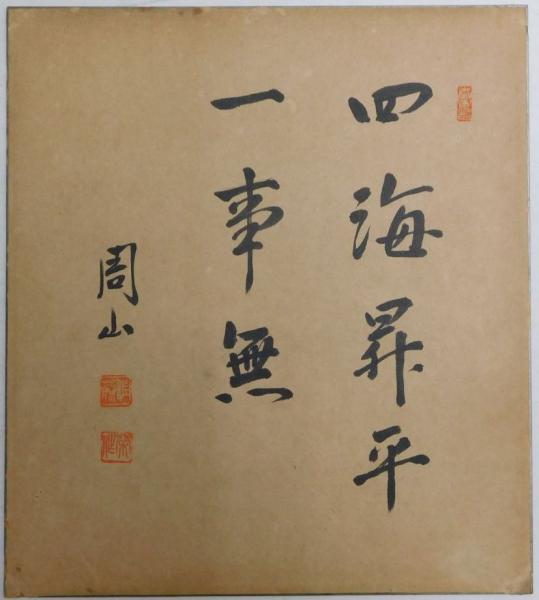 四海昇平
一事無
周山